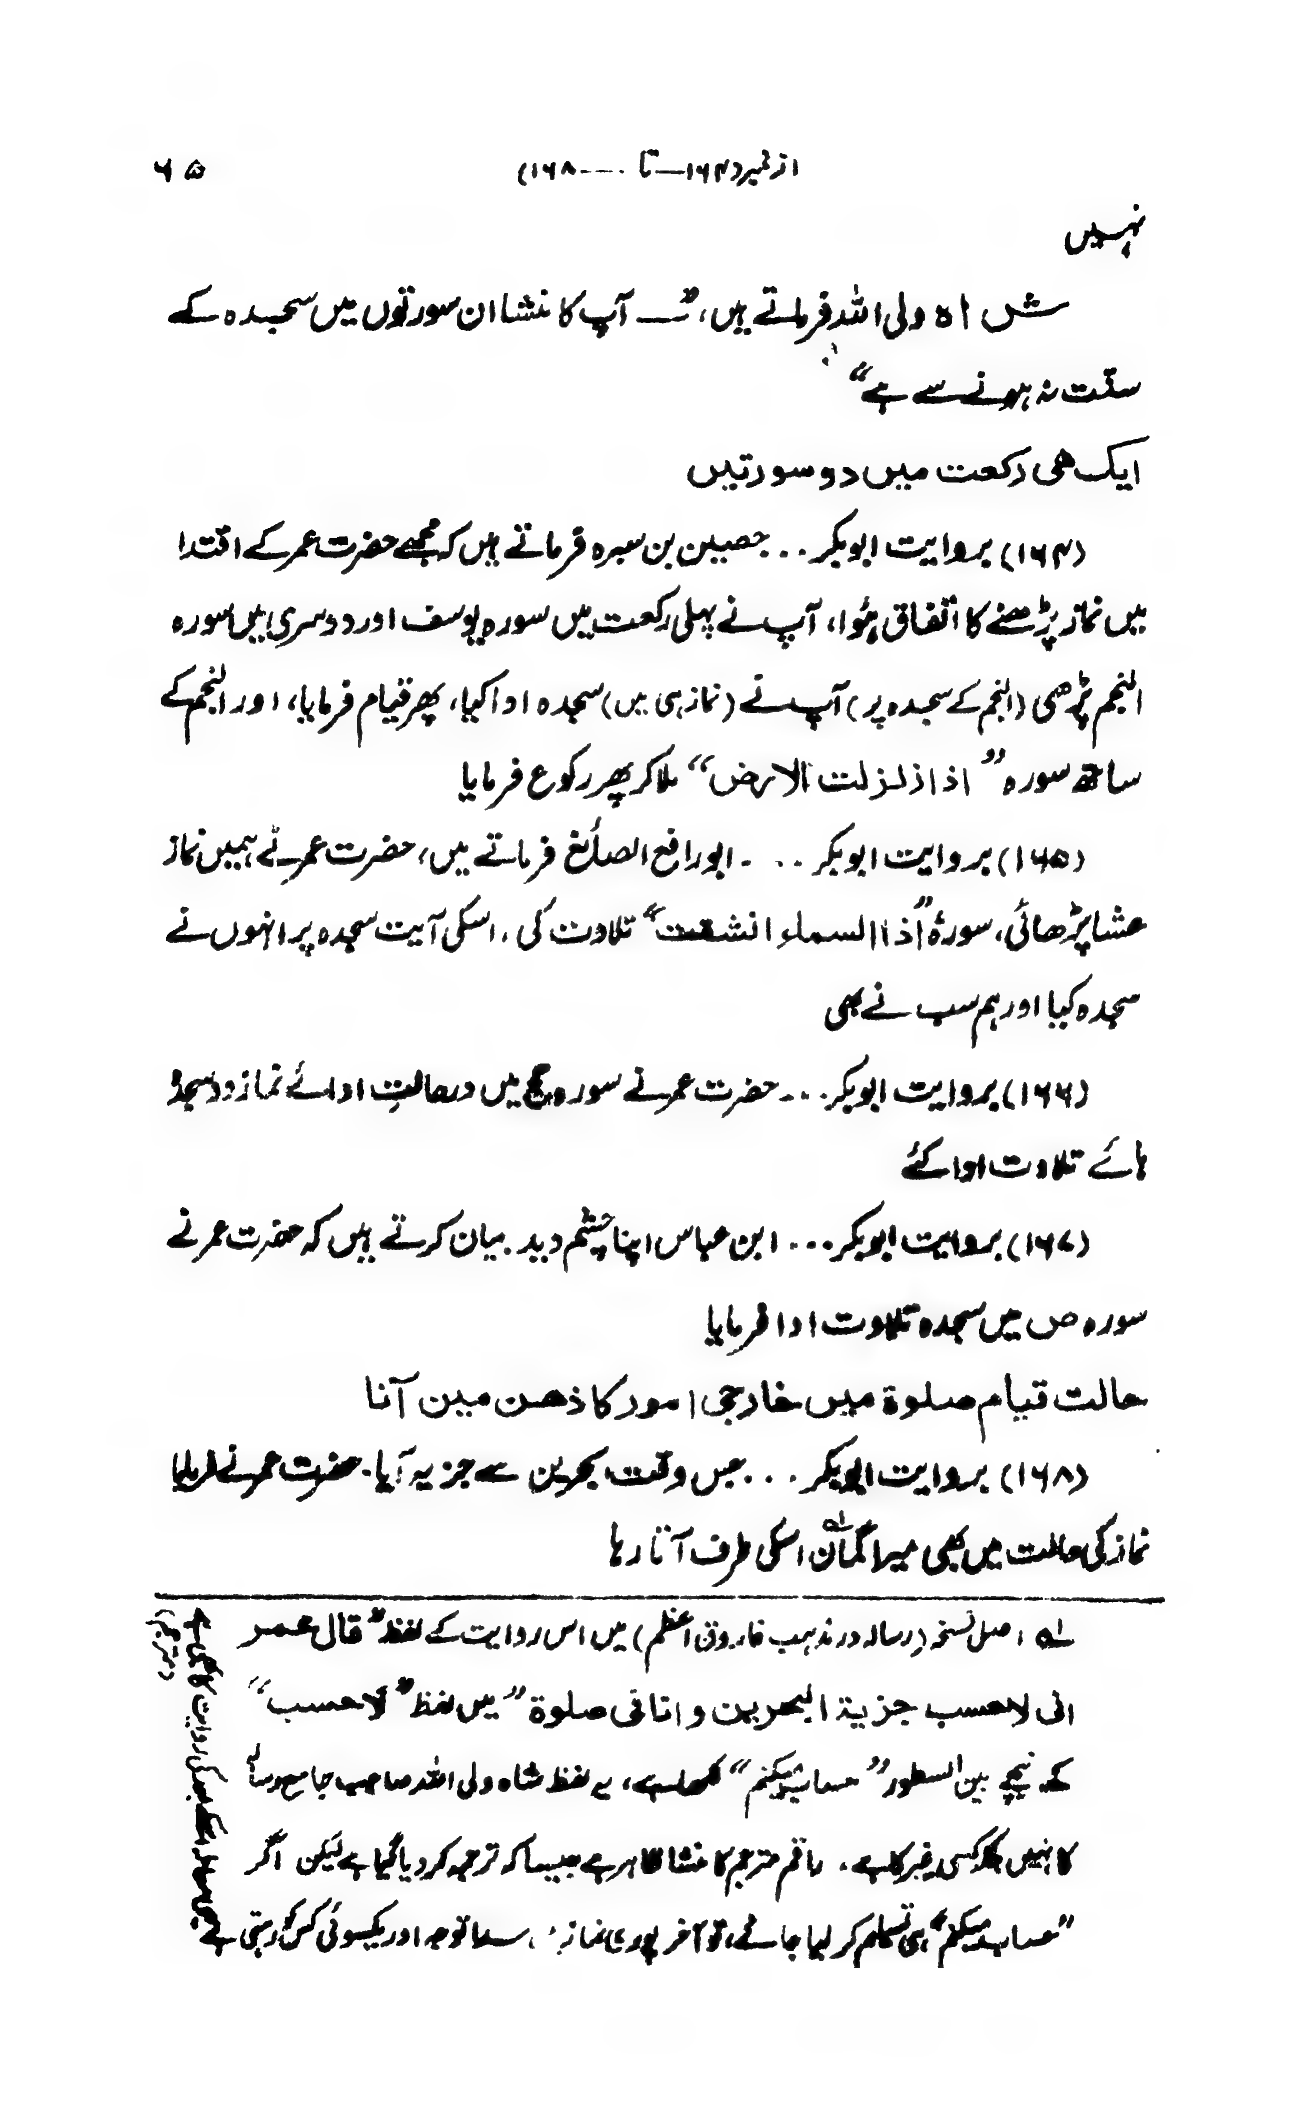 از نمبر (۱۶۴ — تا ---- ۱۶۸) ۶۵
نہیں
شاہ ولی اللہ فرماتے ہیں، "— آپ کا منشا ان سورتوں میں سجدہ کے
سنّت نہ ہونے سے ہے"
ایک ھی رکعت میں دو سورتیں
(۱۶۴) بروایت ابوبکر ... حصین بن سبرہ فرماتے ہیں کہ مجھے حضرت عمر کے اقتدا
میں نماز پڑھنے کا اتفاق ہُوا، آپ نے پہلی رکعت میں سورہ یوسف اور دوسری میں سورہ
النجم پڑھی (النجم کے سجدہ پر) آپ نے (نماز ہی میں) سجدہ ادا کیا، پھر قیام فرمایا، اور النجم کے
ساتھ سورہ "اذا زلزلت الارض" ملا کر پھر رکوع فرمایا
(۱۶۵) بروایت ابوبکر ... ابورافع الصائغ فرماتے ہیں، حضرت عمر نے ہمیں نماز
عشا پڑھائی، سورۂ "اذا السماء انشقت" تلاوت کی، اسکی آیت سجدہ پر انہوں نے
سجدہ کیا اور ہم سب نے بھی
(۱۶۶) بروایت ابوبکر ... حضرت عمر نے سورہ حج میں درحالتِ ادائے نماز دو سجدۂ
ہائے تلاوت ادا کئے
(۱۶۷) بروایت ابوبکر ... ابن عباس اپنا چشم دید بیان کرتے ہیں کہ حضرت عمر نے
سورہ ص میں سجدہ تلاوت ادا فرمایا
حالت قیام صلوۃ میں خارجی امور کا ذھن مین آنا
(۱۶۸) بروایت ابوبکر ... جس وقت بحرین سے جزیہ آیا. حضرت عمر نے فرمایا
نماز کی حالت میں بھی میرا گمان ۱ اسکی طرف آتا رہا
۱ اصل نسخہ (رسالہ در مذہب فاروق اعظم) میں اس روایت کے لفظ "قال عمر
انی لاحسب جزیۃ البحرین و انا فی صلوۃ" میں لفظ "لاحسب"
کے نیچے بین السطور "حساب میکنم" لکھا ہے، یہ لفظ شاہ ولی اللہ صاحب جامع رسالہ
کا نہیں بلکہ کسی غیر کا ہے. راقم مترجم کا منشا ظاہر ہے جیسا کہ ترجمہ کر دیا گیا ہے لیکن اگر
"حساب میکنم" ہی تسلیم کر لیا جائے، تو آخر پوری نماز توجہ اور یکسوئی کس کو رہتی ہے
بعد کی روایت کا بھی ہے
(مترجم)